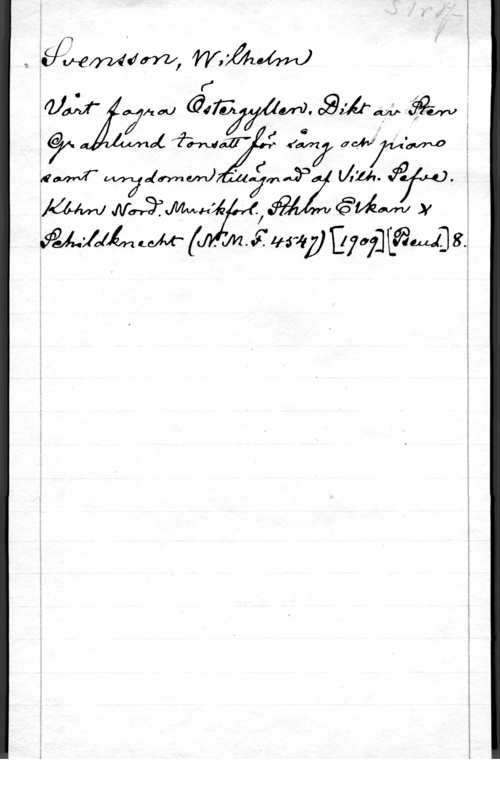 Svensson, Wilhelm
Vårt fagra Östergyllen. Dikt av Sten
Granlund tonsatt för sång och piano
samt ungdomen tillägnad af Vilh. Sefve.
Kbhn Nord. Musikforl., Sthlm Elkan &
Schildknecht (N.M.F. 4547) [1909] [Pseud.] 8.